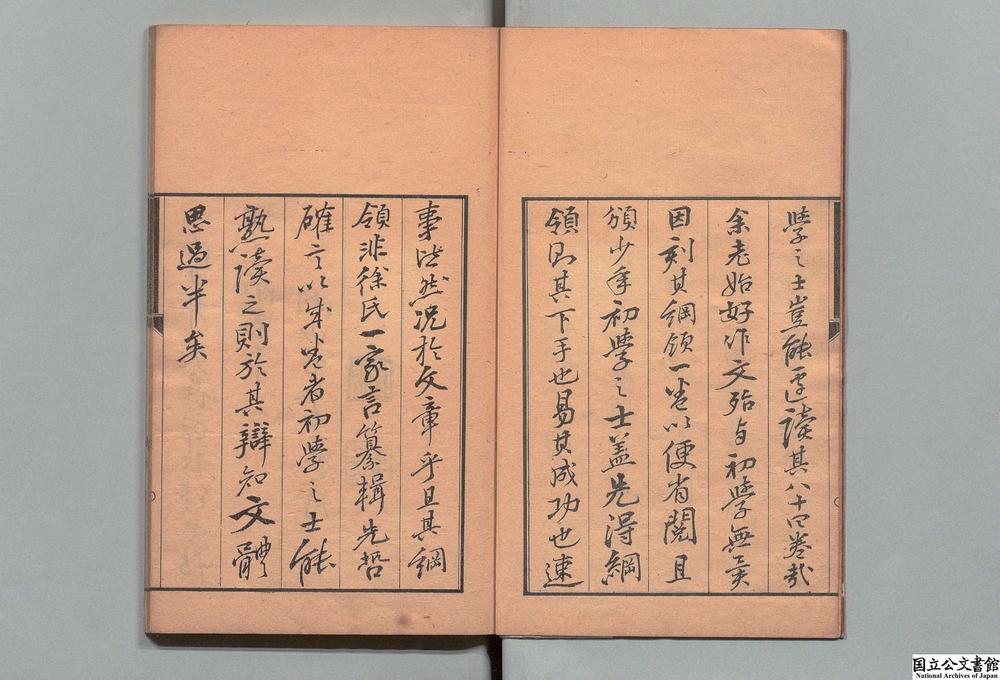 學之士豈能遽讀其八十四卷哉
余老始好作文殆与初學無異
因刻其綱領一卷以便省閱且
頒少年初學之士盖先得綱
領則其下手也易其成功也速
事皆然況於文章乎且其綱
領非徐氏一家言纂輯先哲
確言以成卷者初學之士能
熟讀之則於其辯知文體
思過半矣
国立公文書館
National Archives of Japan